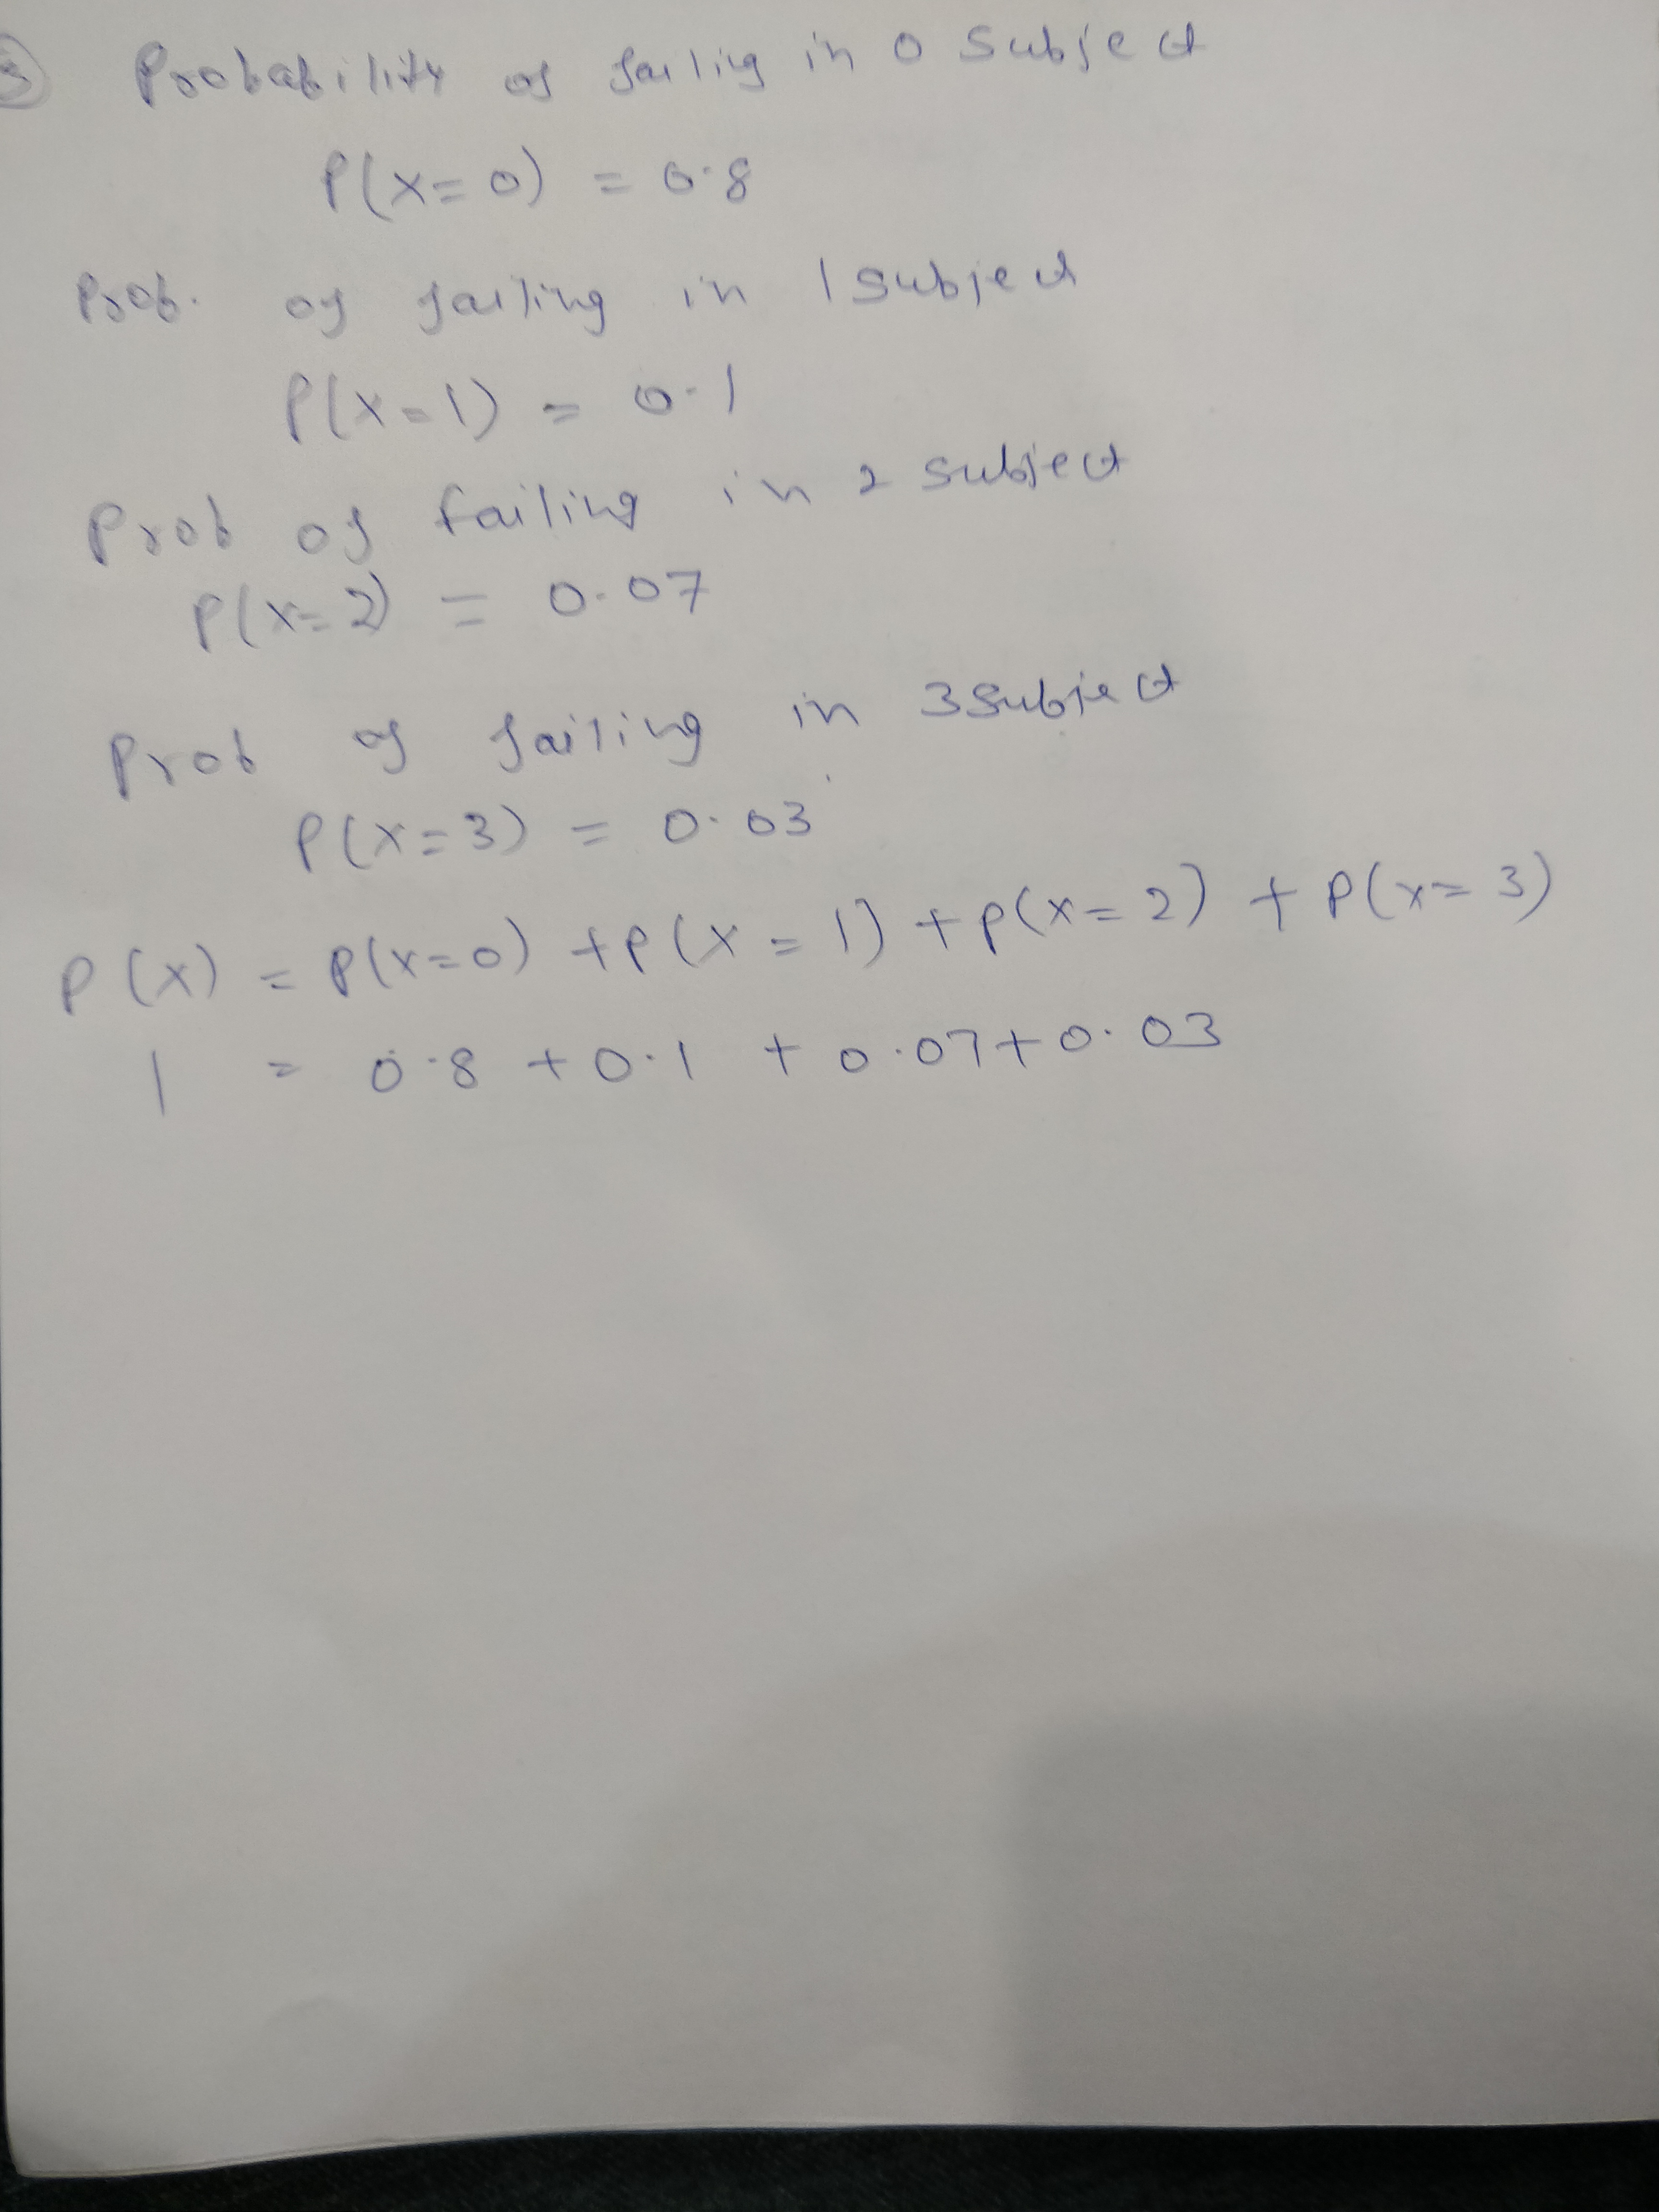 ③ Probability of failig in 0 Subject
P(X=0) = 0.8
Prob. of failing in 1 Subject
P(X=1) = 0.1
Prob of failing in 2 subject
P(X=2) = 0.07
Prob of failing in 3 Subject
P(X=3) = 0.03
P(X) = P(X=0) + P(X=1) + P(X=2) + P(X=3)
1 = 0.8 + 0.1 + 0.07 + 0.03